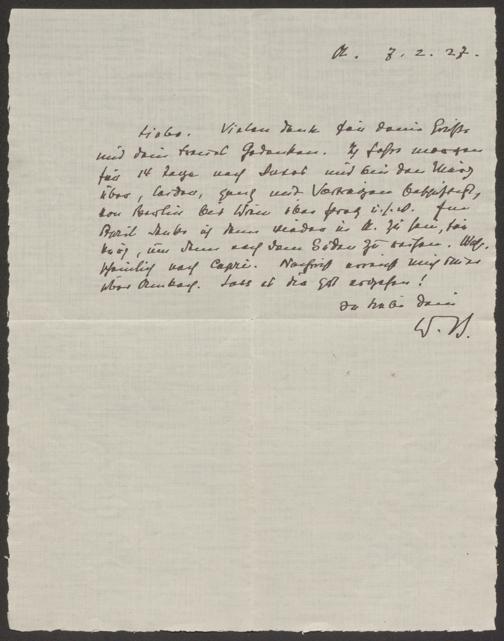 A. 7. 2. 27.
Liebe. Vielen Dank für deine Grüße
und dein Gedenken. Ich fahre morgen
für 14 Tage nach und bin den März
über, leider, ganz mit Vorträgen beschäftigt,
von Berlin bis Wien über Prag u.s.w. Im
April denke ich dann wieder in A. zu sein,
um dann nach dem Süden zu reisen.
nach Capri. Nachricht erreicht mich immer
über Ambach. Lass es dir gut ergehen!
In Liebe dein
W. B.